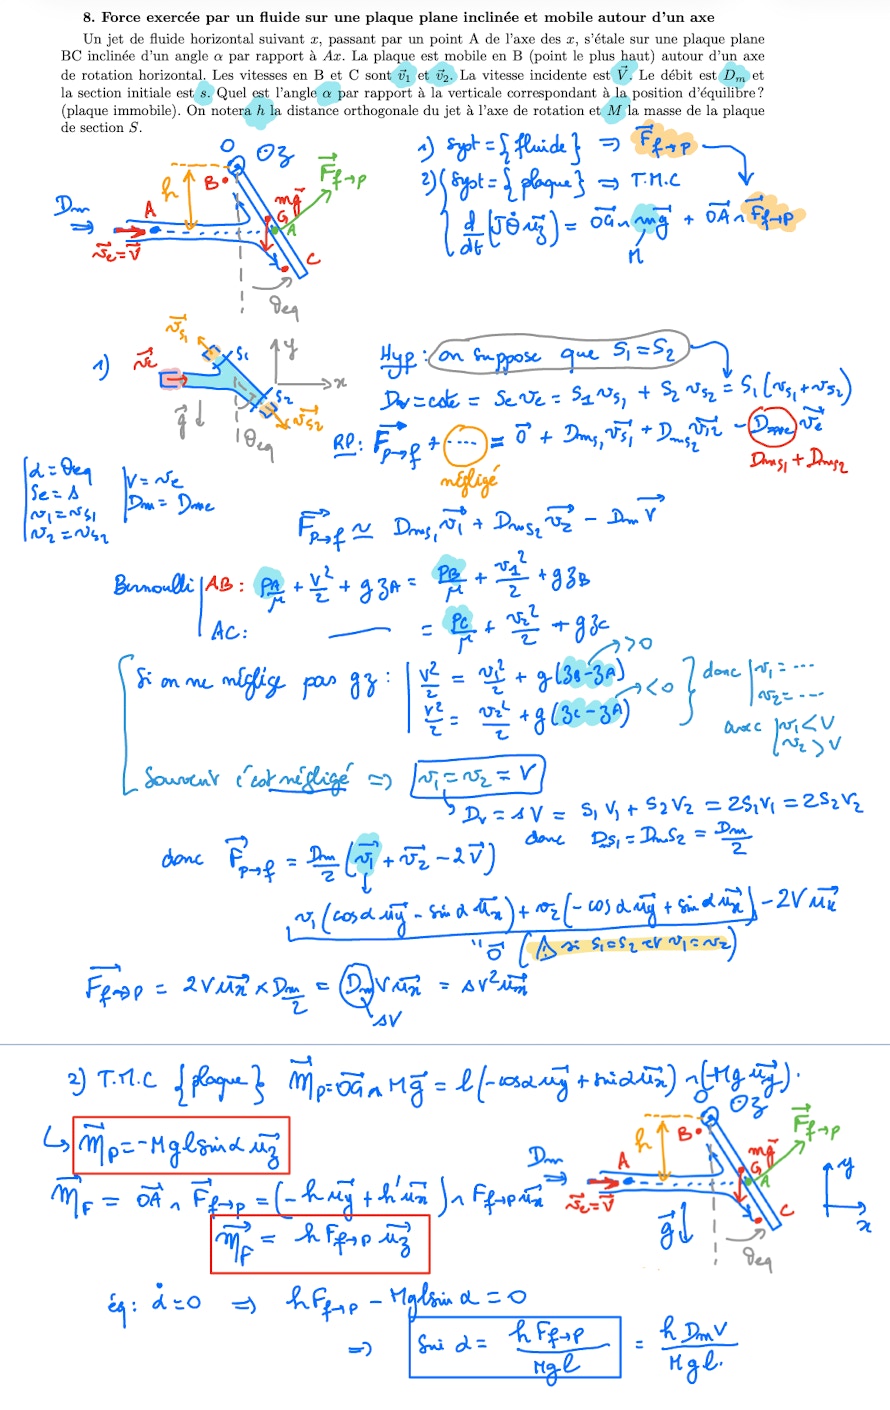 8. Force exercée par un fluide sur une plaque plane inclinée et mobile autour d'un axe
Un jet de fluide horizontal suivant x, passant par un point A de l'axe des x, s'étale sur une plaque plane
BC inclinée d'un angle α par rapport à Ax. La plaque est mobile en B (point le plus haut) autour d'un axe
de rotation horizontal. Les vitesses en B et C sont v⃗₁ et v⃗₂. La vitesse incidente est V⃗. Le débit est Dₘ et
la section initiale est s. Quel est l'angle α par rapport à la verticale correspondant à la position d'équilibre?
(plaque immobile). On notera h la distance orthogonale du jet à l'axe de rotation et M la masse de la plaque
de section S.
O ⊙z
B
h
F⃗f→p
mg⃗
G
A
Dm ⇒
A
v⃗e = V⃗
C
θeq
1) syst = {fluide} ⇒ F⃗f→p
2) syst = {plaque} ⇒ T.M.C
d/dt (Jθ̇ u⃗z) = OG⃗ ∧ mg⃗ + OA⃗ ∧ F⃗f→p
M
1) v⃗e
v⃗s1
S1
S2
v⃗s2
y
x
g⃗ ↓
θeq
Hyp : on suppose que S1 = S2
Dv = cste = Se ve = S1 vs1 + S2 vs2 = S1 (vs1 + vs2)
RP: F⃗p→f + .... = 0⃗ + Dms1 v⃗s1 + Dms2 v⃗s2 - Dme v⃗e
négligé
Dms1 + Dms2
α = θeq
Se = s
v1 = vs1
v2 = vs2
V = ve
Dm = Dme
F⃗p→f ≃ Dms1 v⃗1 + Dms2 v⃗2 - Dm V⃗
Bernoulli AB : PA/μ + V²/2 + g zA = PB/μ + v1²/2 + g zB
AC : ——— = PC/μ + v2²/2 + g zC
Si on ne néglige pas gz : V²/2 = v1²/2 + g(zB - zA) >0
V²/2 = v2²/2 + g(zC - zA) <0
donc v1 = ...
v2 = ...
avec v1 < V
v2 > V
Souvent c'est négligé ⇒ v1 = v2 = V
Dv = sV = S1 V1 + S2 V2 = 2S1V1 = 2S2V2
donc Ds1 = DmS2 = Dm/2
donc F⃗p→f = Dm/2 (v⃗1 + v⃗2 - 2V⃗)
v1 (cosα u⃗y - sinα u⃗x) + v2 (-cosα u⃗y + sinα u⃗x) - 2V u⃗x
" 0⃗ (⚠ si S1 = S2 et v1 = v2)
F⃗f→p = 2V u⃗x × Dm/2 = Dm V u⃗x = sV² u⃗x
sV
2) T.M.C {plaque} M⃗p = OG⃗ ∧ Mg⃗ = l(-cosα u⃗y + sinα u⃗x) ∧ (-Mg u⃗y).
↳ M⃗p = -Mgl sinα u⃗z
M⃗F = OA⃗ ∧ F⃗f→p = (-h u⃗y + h' u⃗x) ∧ Ff→p u⃗x
M⃗F = h Ff→p u⃗z
O ⊙z
B
h
F⃗f→p
mg⃗
G
A
Dm ⇒
A
v⃗e = V⃗
C
g⃗ ↓
θeq
y
x
éq : α̇ = 0 ⇒ h Ff→p - Mgl sin α = 0
⇒ sin α = h Ff→p / Mgl = h Dm V / Mgl.